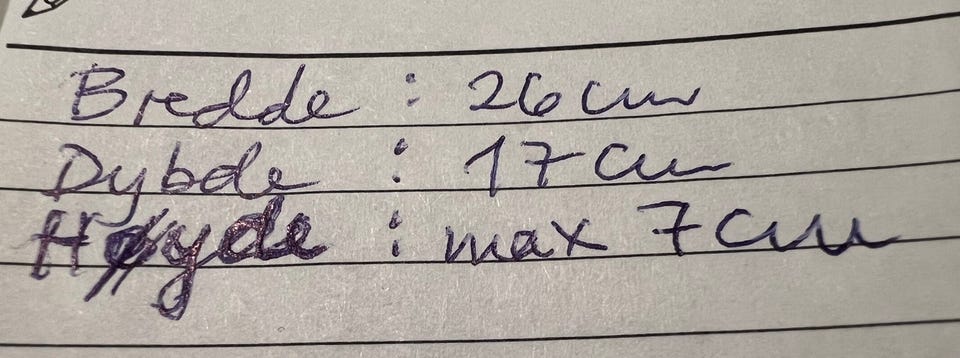 Bredde : 26 cm
Dybde : 17 cm
Høyde : max 7 cm